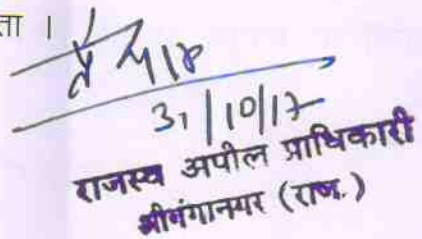 ता ।
31/10/17
राजस्व अपील प्राधिकारी
श्रीगंगानगर (राज.)